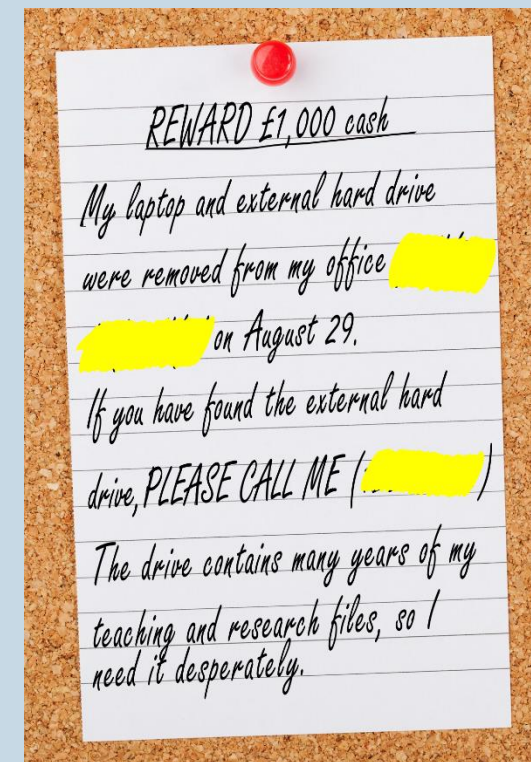 REWARD £1,000 cash
My laptop and external hard drive
were removed from my office
on August 29.
If you have found the external hard
drive, PLEASE CALL ME (          )
The drive contains many years of my
teaching and research files, so I
need it desperately.